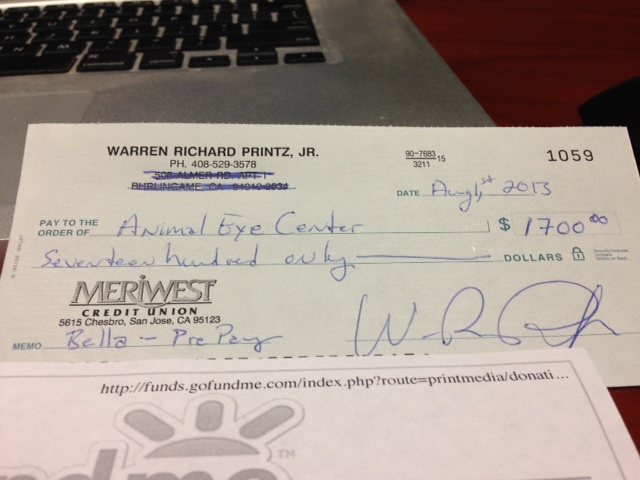 WARREN RICHARD PRINTZ, JR.
PH. 408-529-3578
90-7683
3211
15
1059
DATE Aug 1st 2013
PAY TO THE
ORDER OF Animal Eye Center $ 1700 00
Seventeen hundred only DOLLARS
MERIWEST
CREDIT UNION
5615 Chesbro, San Jose, CA 95123
MEMO Bella - Pre Pay
http://funds.gofundme.com/index.php?route=printmedia/donati...
TM